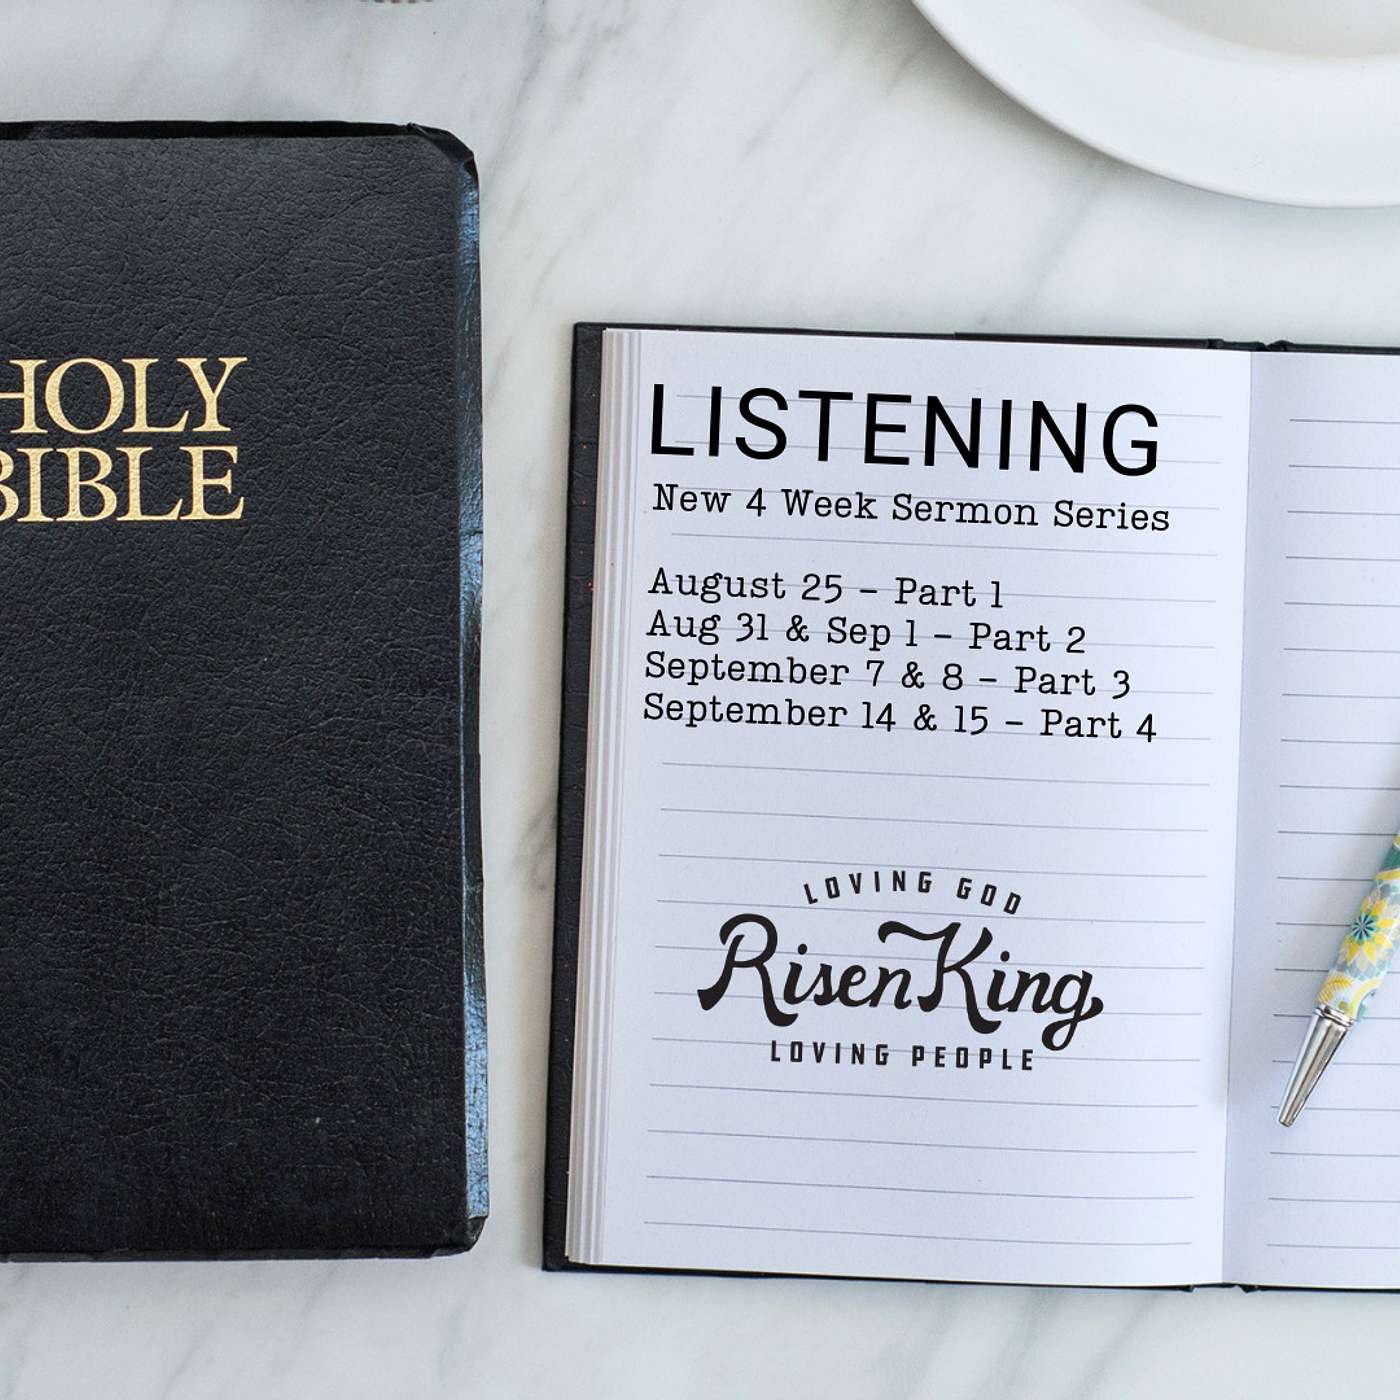 HOLY
BIBLE
LISTENING
New 4 Week Sermon Series
August 25 - Part 1
Aug 31 & Sep 1 - Part 2
September 7 & 8 - Part 3
September 14 & 15 - Part 4
LOVING GOD
Risen King
LOVING PEOPLE